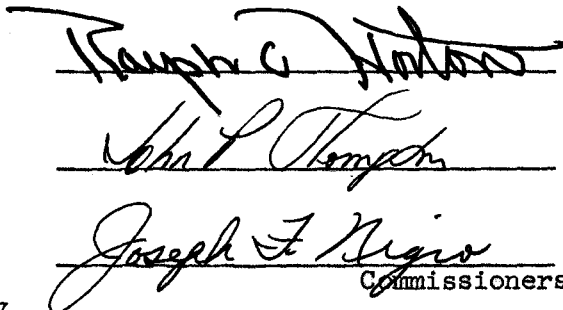 Ralph C Horton
John P Thompson
Joseph F Nigro
Commissioners